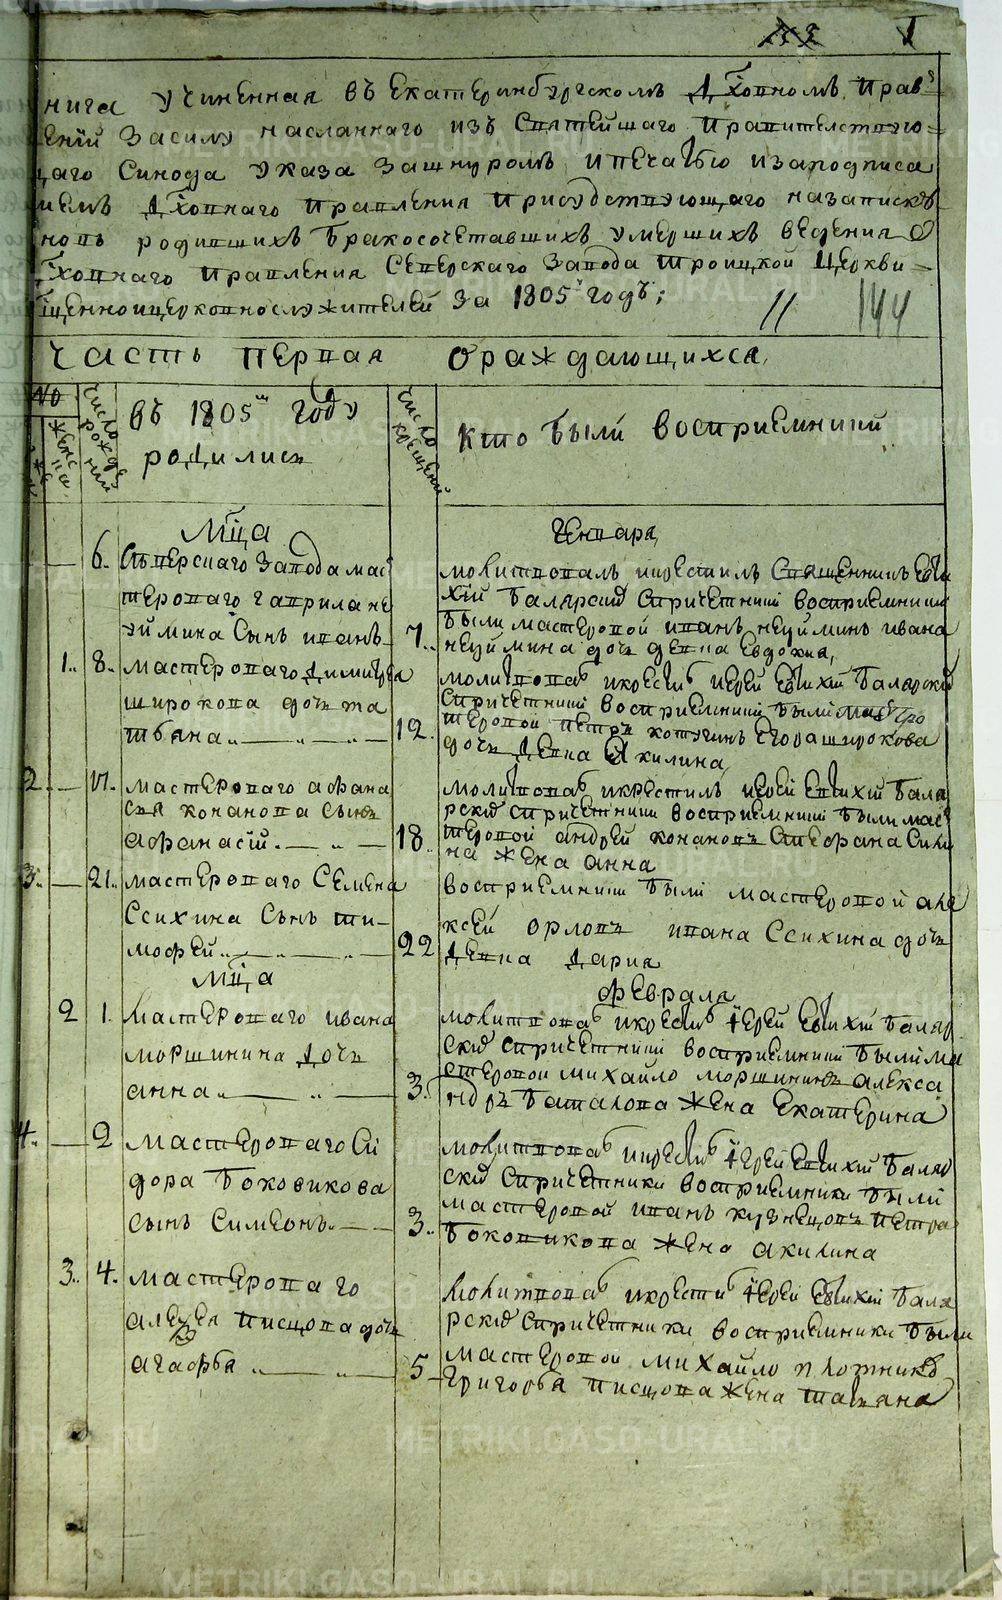 нига учиненная въ Екатеринбургскомъ Духовномъ Прав
ении Засилу насланнаго изъ Святейшаго Правителствую
щаго Синода указа зашнуромъ ипечатью изаподписа
иемъ Духовнаго Правления Присудствующаго назаписку
новъ родившихъ бракосочетавшихъ умершихъ ведения
уховнаго Правления Северскаго Завода троицкой Церкви
щенноицерковнослужителей за 1805й годъ;
11 144
Часть первая ораждающихся
въ 1805м году
родились
число рожде ний
число крещений
кто были восприемники
Мца Генваря
6. Северскаго завода мас
тероваго гаврила не
уймина Сынъ иванъ
7.
молитвовалъ икрестилъ Священникъ Евти
хий Балярский Спричетники восприемники
были мастеровой иванъ неуйминъ ивана
неуймина дочь девка Евдокия,
1. 8. мастероваго Димитрея
широкова дочь та
тьяна
12.
молитвовалъ икрестилъ иерей Евтихий Балярский
Спричетники восприемники были масте
теровой петръ Егора широкова
дочь Девка Акилина
2 17. мастероваго афана
сья конанова Сынъ
афанасий.
18.
молитвовалъ икрестилъ иерей Евтихий Баля
рский спричетники восприемники были мас
теровой андрей конановъ Стефана
на жена анна
3. 21. мастероваго Семена
Ссихина Сынъ ти
мофей
22
восприемники были мастеровой але
ксей орловъ ивана Ссихина дочь
Девка Дария
мца февраля
2 1. мастероваго ивана
моршинина Дочь
анна
3.
молитвовалъ икрестилъ иерей Евтихий Баляр
ский спричетники восприемники были ма
стеровой михайло моршининъ алекса
ндръ баталова жена Екатерина
4. 2 мастероваго Си
дора Боковикова
сынъ Симеонъ.
3.
молитвовалъ икрестилъ иерей Евтихий Баляр
ский Спричетники восприемники были
мастеровой иванъ кузнецовъ петра
Боковикова жена акилина
3. 4. мастероваго
алексея писцова дочь
агафья
5
молитвовалъ икрестилъ иерей Евтихий Баля
рский Спричетники восприемники были
мастеровой михайло плотников
Григорья писцова жена татьяна
METRIKI.GASO-URAL.RU